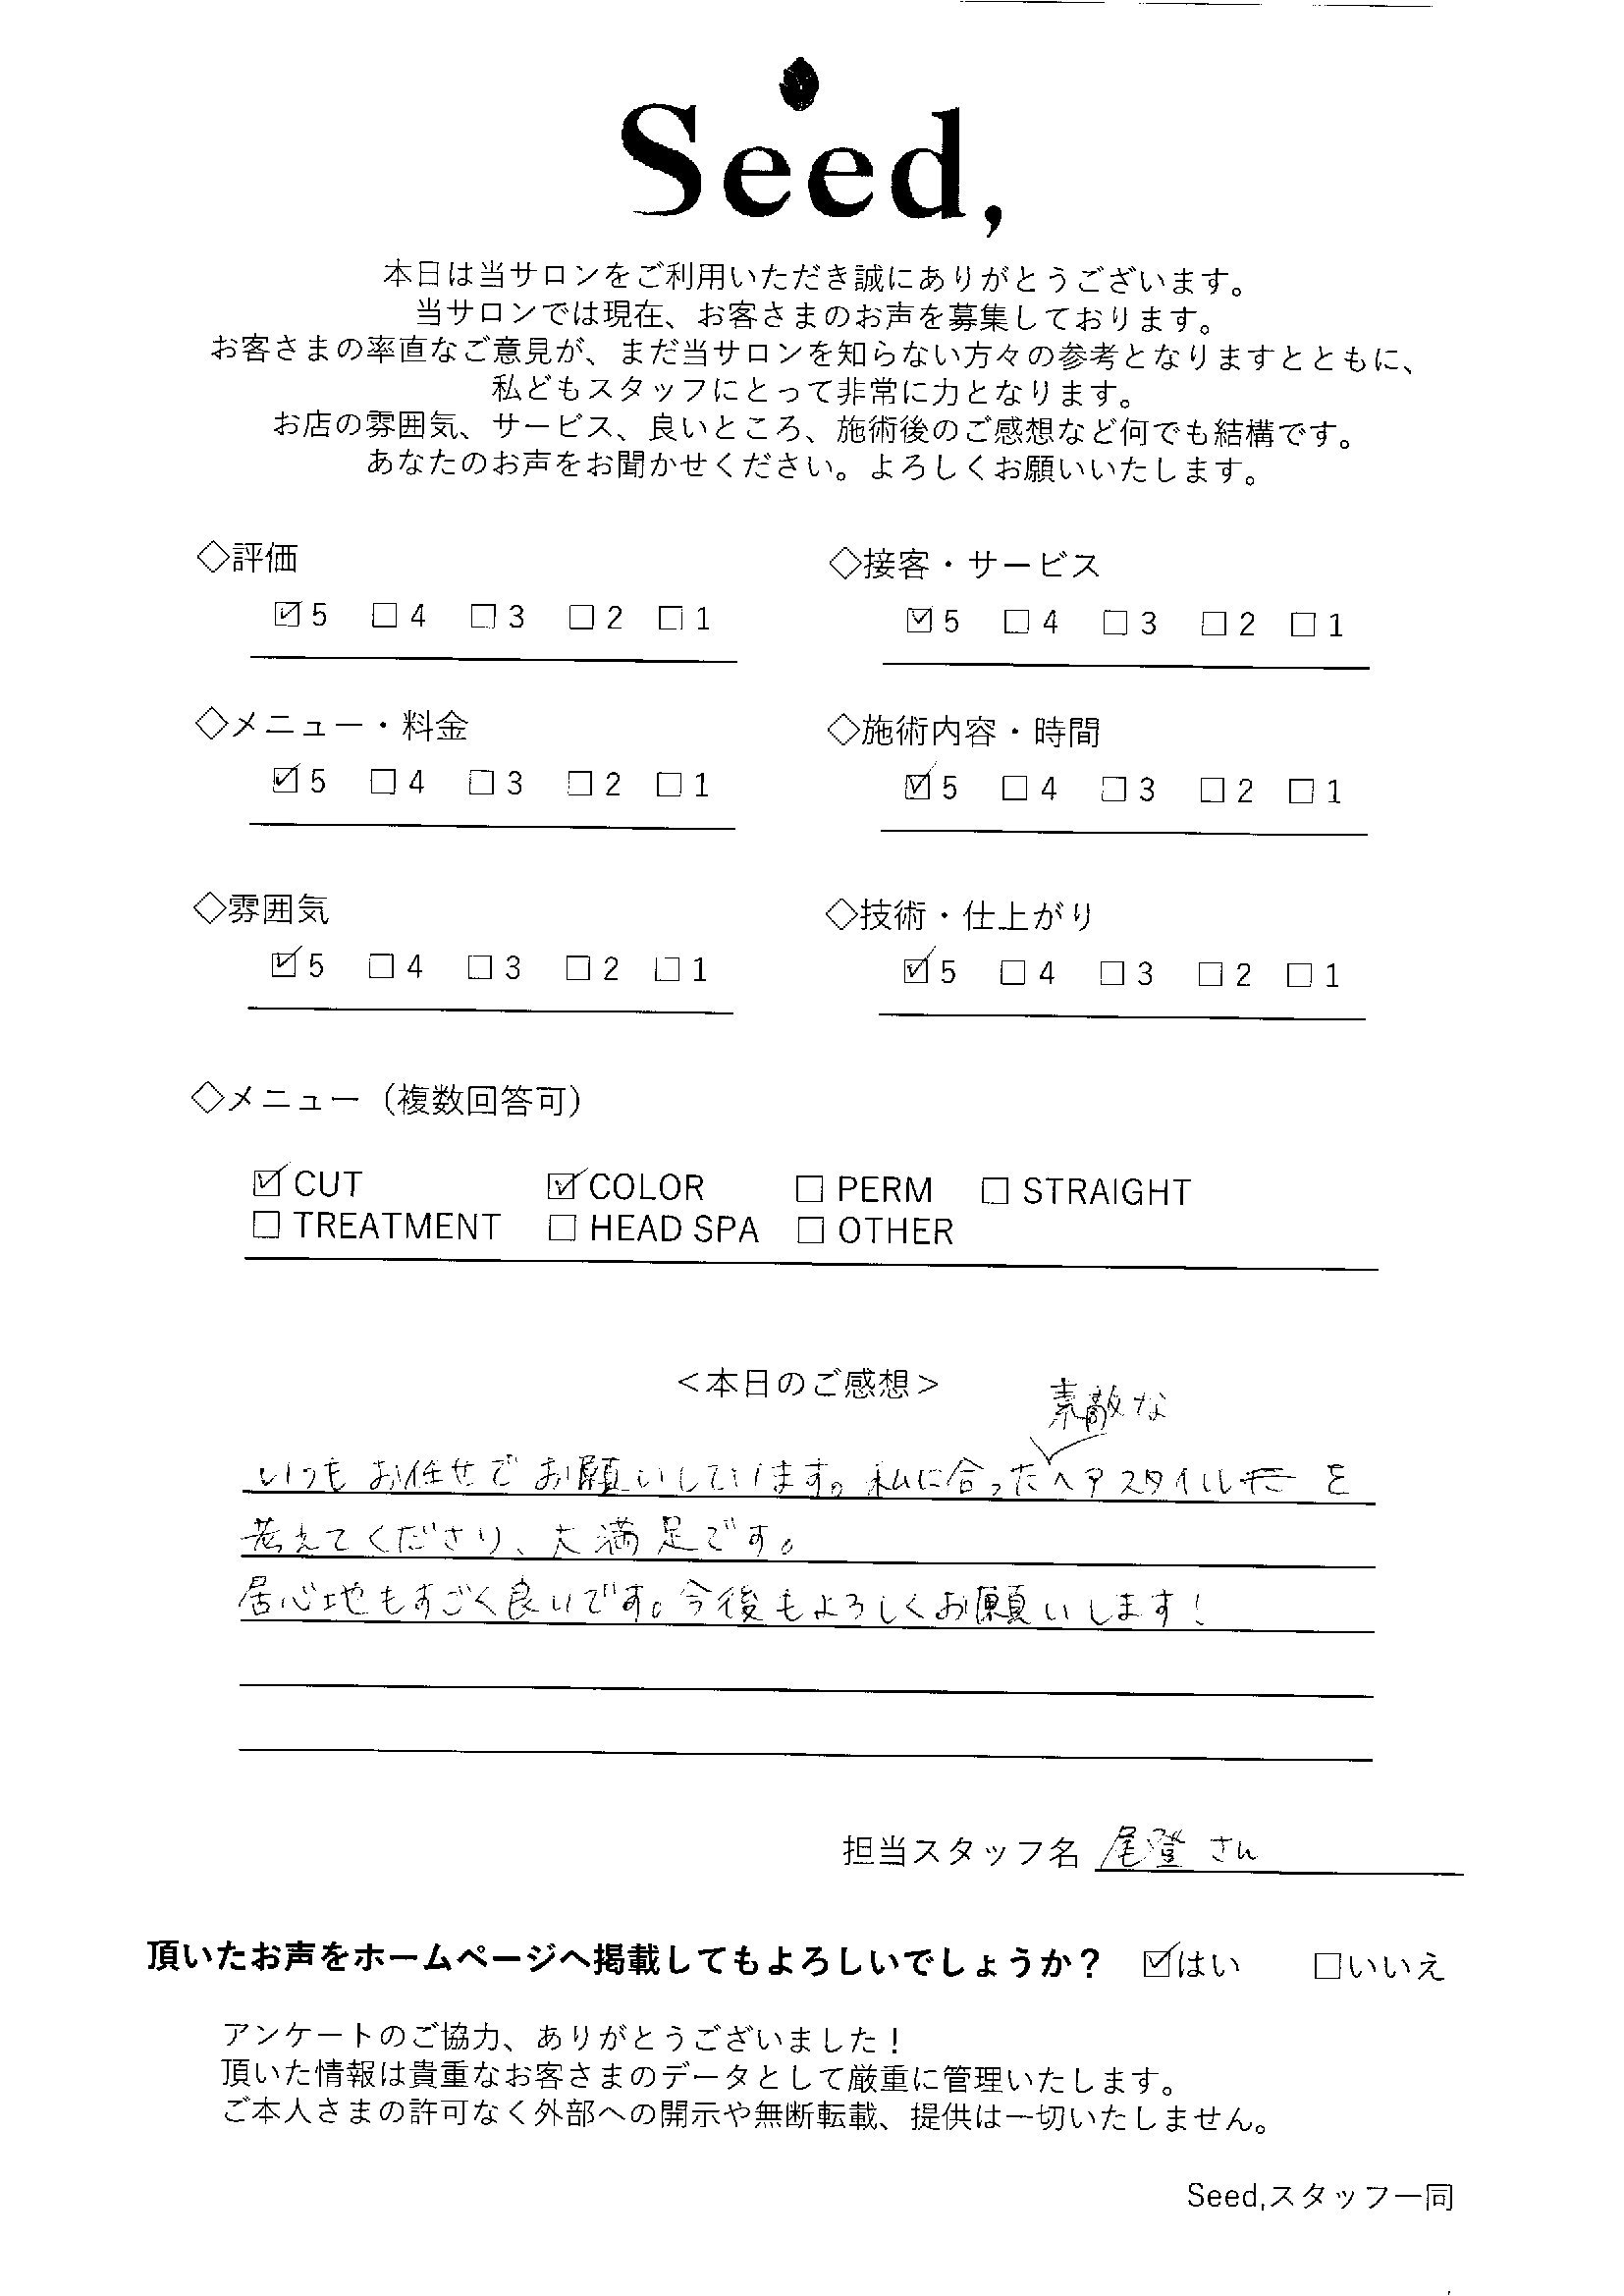 Seed,
本日は当サロンをご利用いただき誠にありがとうございます。
当サロンでは現在、お客さまのお声を募集しております。
お客さまの率直なご意見が、まだ当サロンを知らない方々の参考となりますとともに、
私どもスタッフにとって非常に力となります。
お店の雰囲気、サービス、良いところ、施術後のご感想など何でも結構です。
あなたのお声をお聞かせください。よろしくお願いいたします。
◇評価
☑5 □4 □3 □2 □1
◇接客・サービス
☑5 □4 □3 □2 □1
◇メニュー・料金
☑5 □4 □3 □2 □1
◇施術内容・時間
☑5 □4 □3 □2 □1
◇雰囲気
☑5 □4 □3 □2 □1
◇技術・仕上がり
☑5 □4 □3 □2 □1
◇メニュー（複数回答可）
☑CUT ☑COLOR □PERM □STRAIGHT
□TREATMENT □HEAD SPA □OTHER
＜本日のご感想＞
素敵な
いつもお任せでお願いしています。私に合ったヘアスタイルを
考えてくださり、大満足です。
居心地もすごく良いです。今後もよろしくお願いします！
担当スタッフ名 尾登さん
頂いたお声をホームページへ掲載してもよろしいでしょうか？ ☑はい □いいえ
アンケートのご協力、ありがとうございました！
頂いた情報は貴重なお客さまのデータとして厳重に管理いたします。
ご本人さまの許可なく外部への開示や無断転載、提供は一切いたしません。
Seed,スタッフ一同